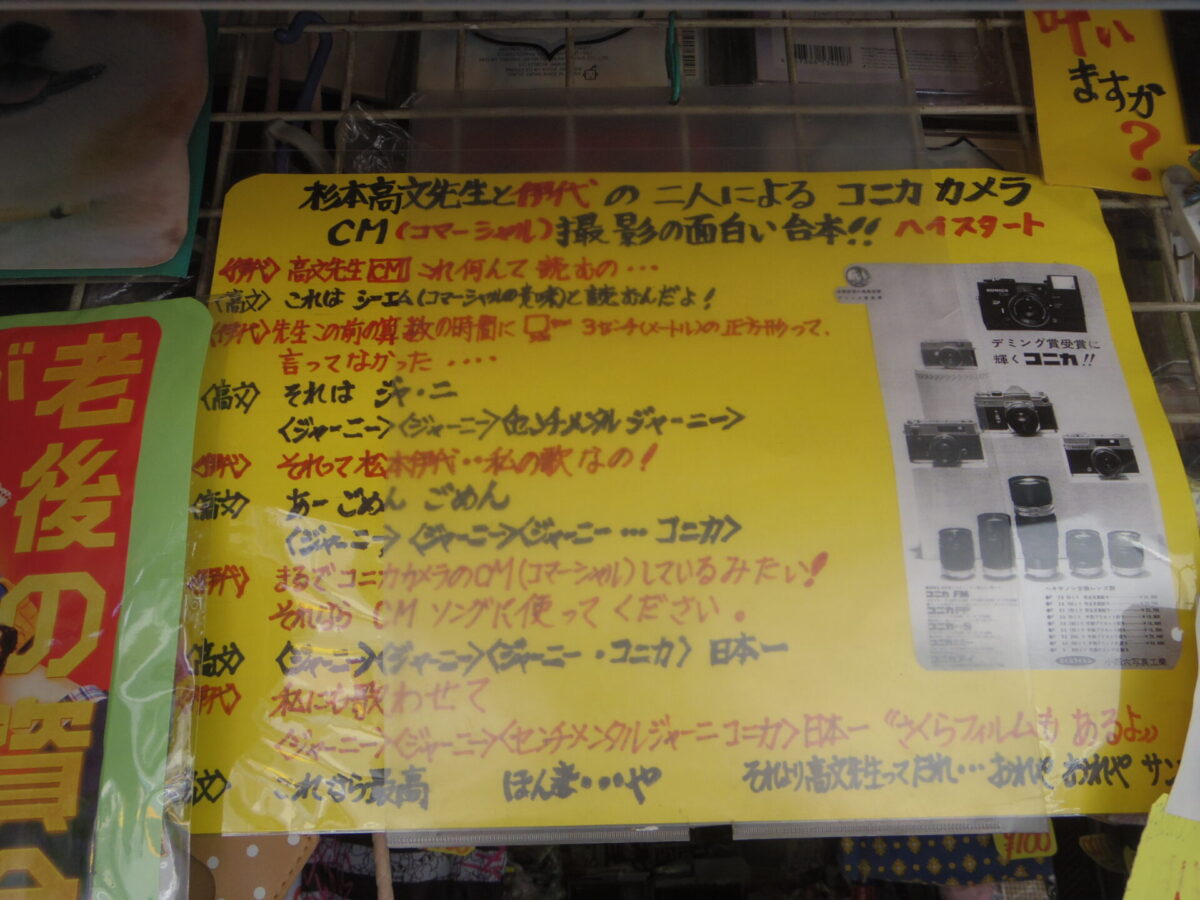 叶い
ますか
?
杉本高文先生と伊代の二人による コニカ カメラ
CM(コマーシャル)撮影の面白い台本!! ヘイスタート
〈伊代〉高文先生CMこれ何んて読むの・・・
〈高文〉これは シーエム(コマーシャルの意味)と読むんだよ!
〈伊代〉先生この前の算数の時間に 3センチ(メートル)の正方形って、
言ってなかった・・・・
〈高文〉それは ジャ・ニ
〈ジャーニー〉〈ジャーニー〉〈センチメンタルジャーニー〉
〈伊代〉それって松本伊代・・私の歌なの!
〈高文〉あー ごめん ごめん
〈ジャーニー〉〈ジャーニー〉〈ジャーニー・・・コニカ〉
〈伊代〉まるでコニカカメラのCM(コマーシャル)しているみたい!
それなら CMソングに使ってください。
〈高文〉〈ジャーニー〉〈ジャーニー〉〈ジャーニー・コニカ〉日本一
〈伊代〉私にも歌わせて
〈ジャーニー〉〈ジャーニー〉〈センチメンタルジャーニーコニカ〉日本一“さくらフィルムもあるよ”
高文〉これなら最高 ほんま・・・や それより高文先生ってだれ・・・おれや おれや サン
デミング賞受賞に
輝く コニカ!!
コニカ FM
小西六写真工業
老後の資金
が
¥100